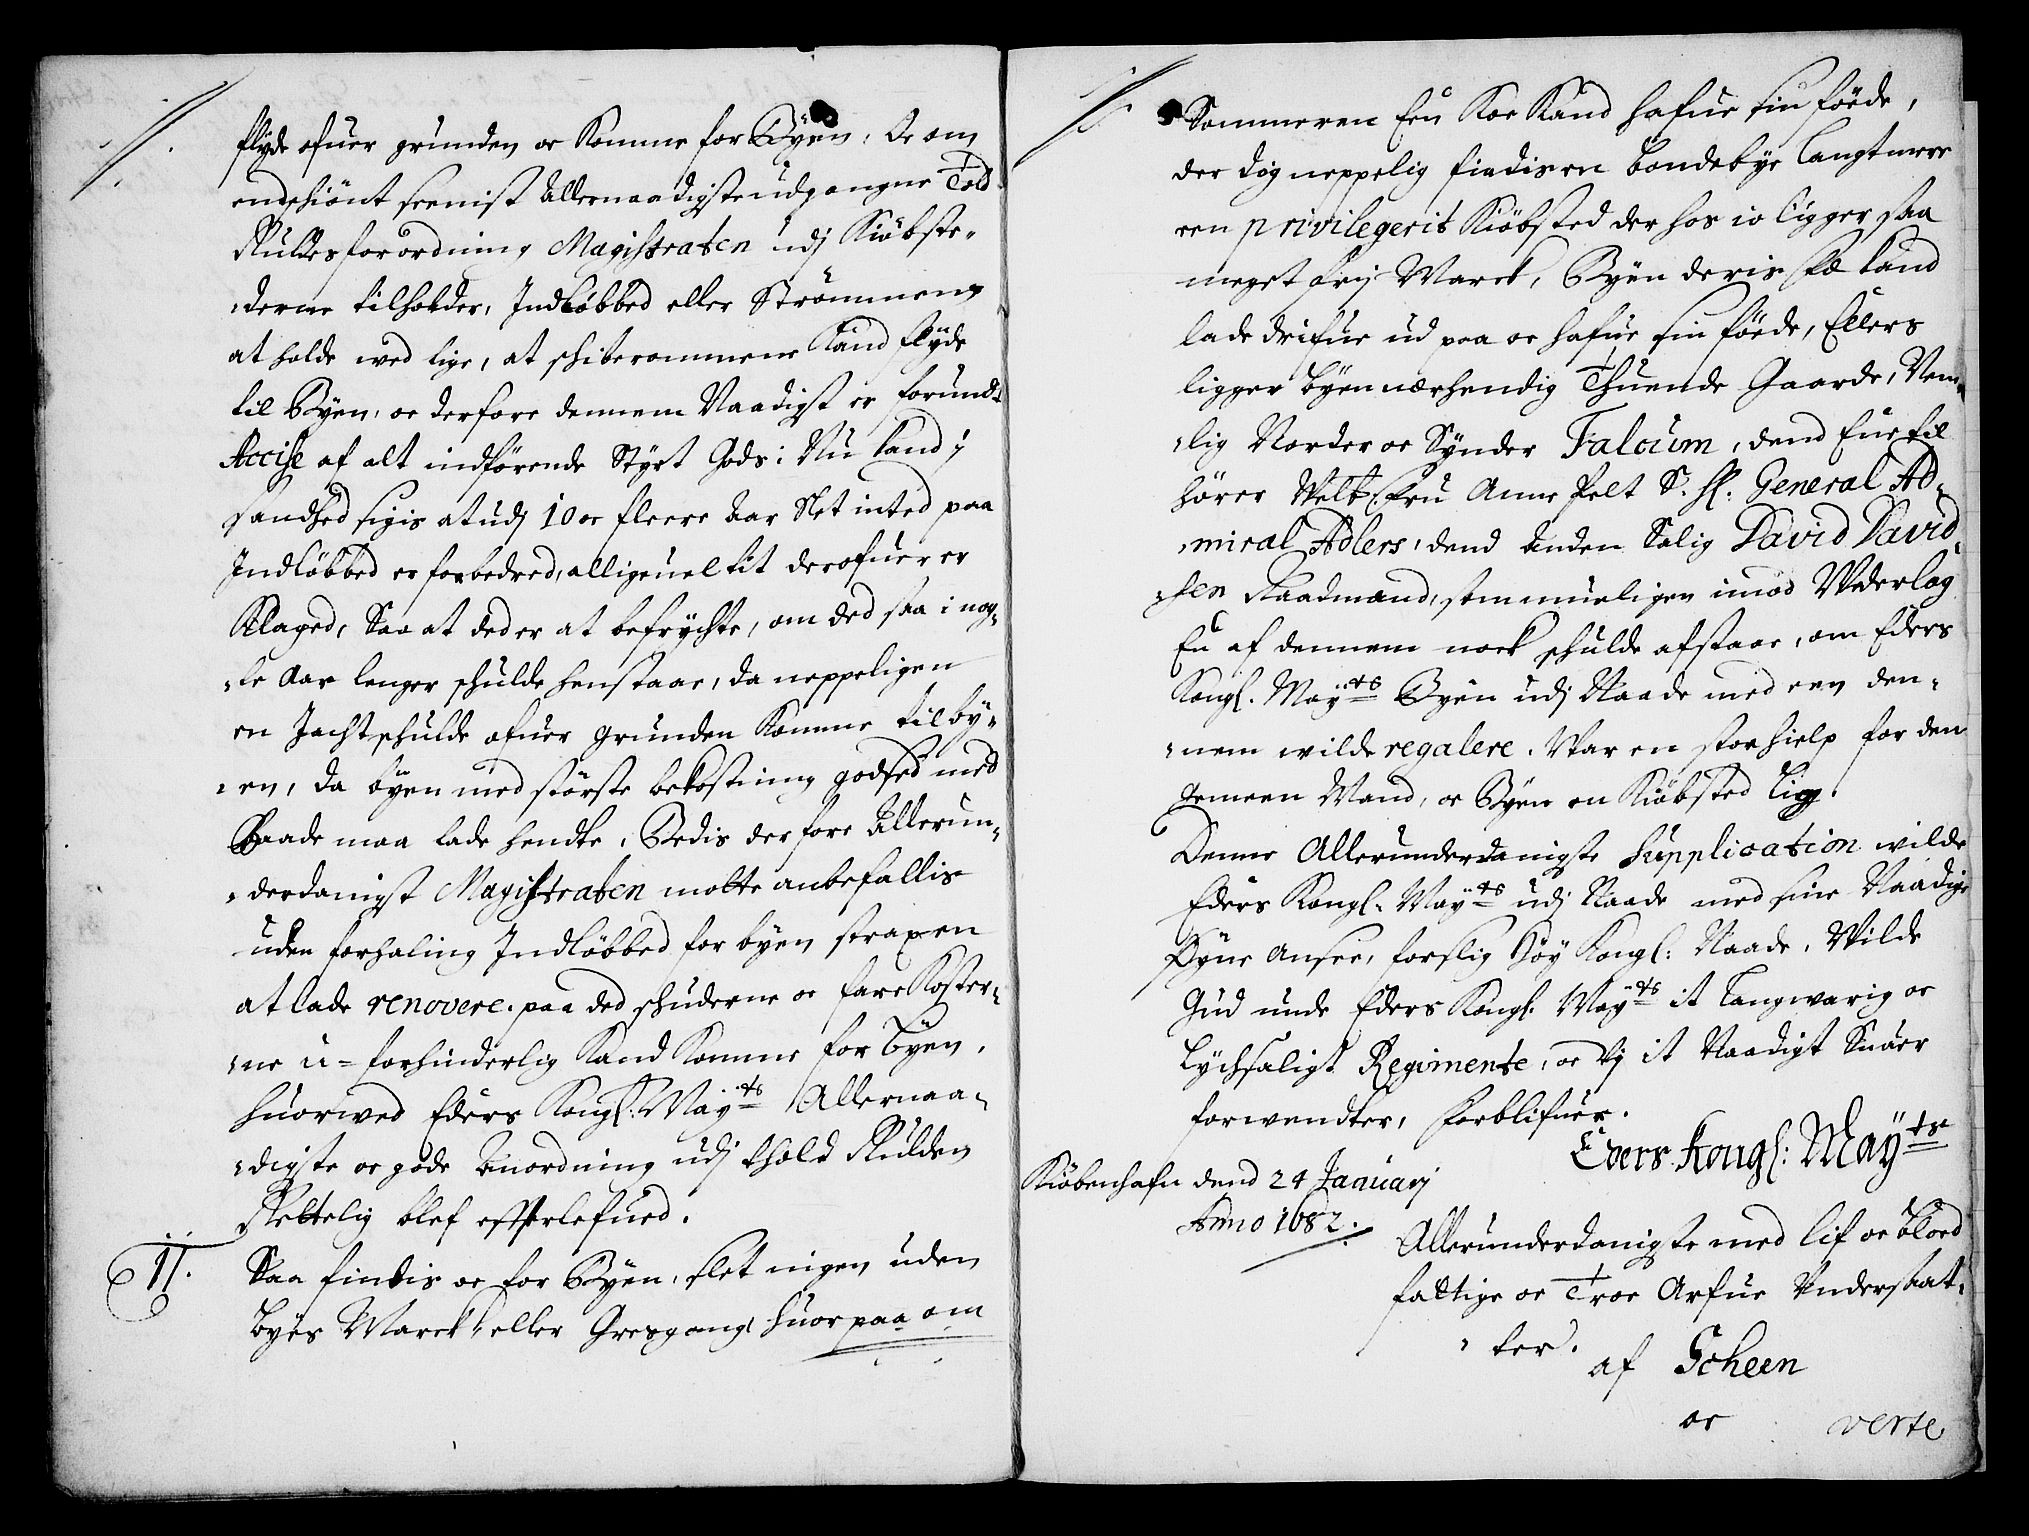 flyde ofuer grunden oc Komme for Byen, Oc om
endschiönt seenist Allernaadigste udgangne Told
Rulles forordning Magistraten udj Kiöbste-
derne tilholder, Indlöbbed eller Strömmene
at holde wed lige, at schibe rommene Kand flyde
til Byen, oc derfore dennem Naadigst er forundt
Accise af alt indförende Styrt Gods: Nu kand J
sandhed sigis at udj 10 oc fleere Aar Slet inted paa
Indlöbbed er forbedred, alligeuel tit derofuer er
Klaged, Saa at ded er at befrychte, om ded saa i nog-
le Aar lenger schulde henstaae, da neppeligen
en Jacht schulde ofuer grunden Komme til by-
en, da byen med störste bekostning godsed med
Baade maa lade hendte, Bedis der fore Allerun-
derdanigst Magistraten motte anbefallis
uden forhaling Indlöbbed for byen straxen
at lade renovere. paa ded schuderne oc fare Koster-
ne u-forhinderlig Kand Komme for byen,
huorwed Eders Kongl: May:ts Allernaa-
digste oc gode Anordning udj thold Rulden
Rettelig blef efterlefued.
11. Saa findis oc for Byen, slet ingen uden
byes Marck eller Gresgang, huor paa om
Sommeren Een Koe Kand hafue sin föede,
der dog neppelig findis en bondebye langt meere
een privilegerit Kiöbsted der hos jo ligger saa
meget frj Marck, Byen deris fæ kand
lade drifue ud paa oc hafue sin föede, Ellers
ligger byen nærhendig Thuende Gaarde, Nem-
lig Norder oc Synder Falcum, dend Eene til
hörer Welb: Fru Anne Pelt S. H: General Ad-
miral Adlers, dend Anden Salig David David-
sen Raadmand, som mueligen imod Wederlag
En af dennem nock schulde afstaae, om Eders
Kongl. May:ts Byen udj Naade med een den-
nem wilde regalere. War en stor hielp for den
gemeen Mand, oc Byen en Kiöbsted lig.
Denne Allerunderdanigste Supplication wilde
Eders Kongl. May:ts udj Naade med sine Naadige
Öyne ansee, for slig höy Kongl: Naade, Wilde
Gud unde Eders Kongl. May:ts it langwarig oc
lychsaligt Regimente, oc Wj it Naadigt Suaer
forwendter, forblifuer.
Eders Kongl: May:ts
Kiöbenhafn dend 24 Januarj
Anno 1682.
Allerunderdanigste med lif oc bloed
fattige oc Troe Arfue Vndersaat-
ter.
af Scheen
oc
verte